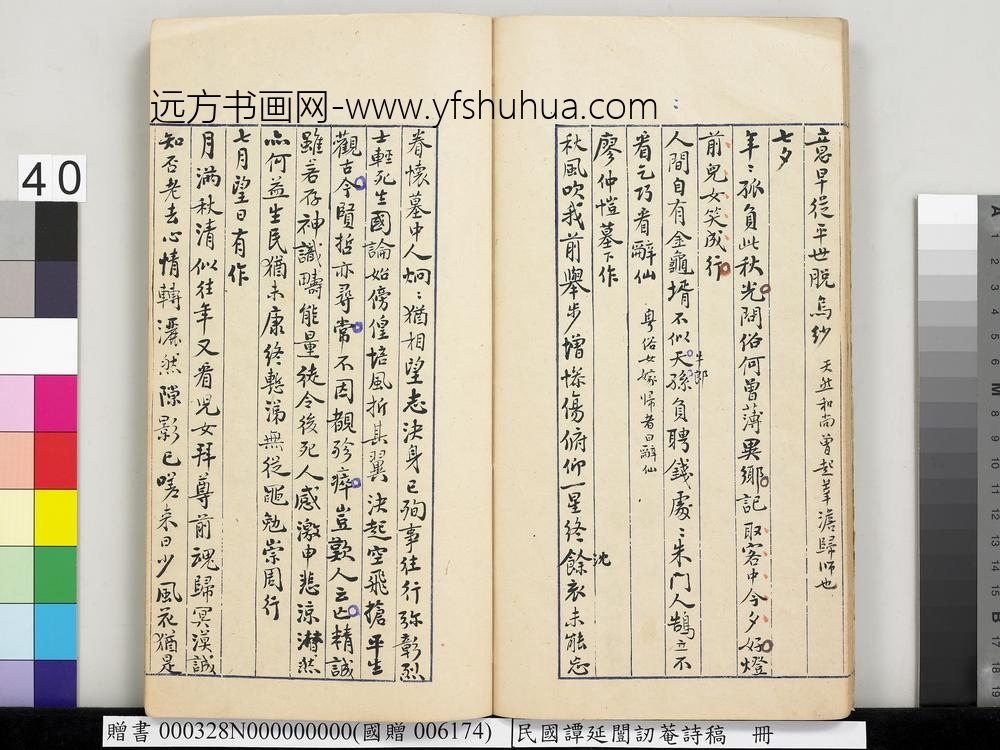 远方书画网-www.yfshuhua.com
意早從平世脫烏紗 天然和尚曾起華澹歸師也
七夕
年〻孤負此秋光閱俗何曾薄異鄉記取客中今夕好燈
前兒女笑成行
人間自有金龜壻不似天孫負聘錢處〻朱門人鵠立不
牛郎
看乞巧看辭仙 粤俗女嫁歸者曰辭仙
廖仲愷墓下作
秋風吹我前舉步增慘傷俯仰一星終餘衣未能忘
沈
眷懷墓中人炯〻猶相望志決身已殉事往行弥彰烈
士輕死生國論始傍偟培風折其翼決起空飛搶平生
觀古今賢哲亦尋常不因覩殄瘁豈歎人云亡精誠
雖若存神識疇能量徒令後死人感激申悲涼潸然
亦何益生民猶未康終慙涕無從黽勉崇周行
七月望日有作
月滿秋清似往年又看兒女拜尊前魂歸冥漠誠
知否老去心情轉灑然隙影已嗟来日少風花猶是
40
贈書 000328N000000000(國贈 006174)
民國譚延闓訒菴詩稿 冊